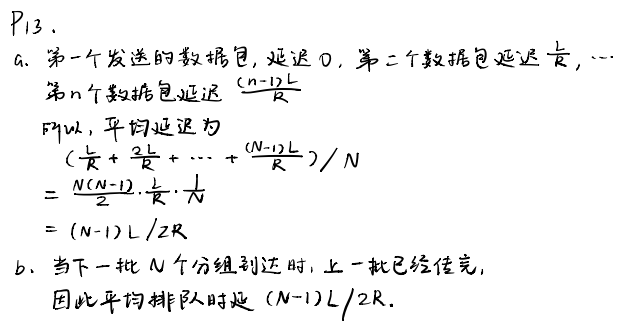 P13.
a. 第一个发送的数据包,延迟0,第二个数据包延迟 L/R,…
第n个数据包延迟 (n-1)L/R
所以,平均延迟为
(L/R + 2L/R + … + (N-1)L/R)/N
= N(N-1)/2 · L/R · 1/N
= (N-1)L/2R
b. 当下一批N个分组到达时,上一批已经传完,
因此平均排队时延 (N-1)L/2R.